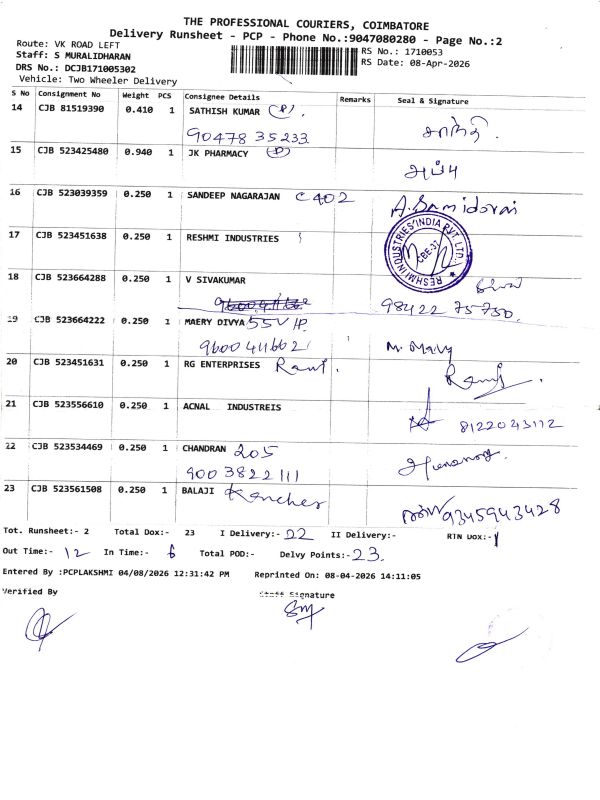 THE PROFESSIONAL COURIERS, COIMBATORE
Delivery Runsheet - PCP - Phone No.:9047080280 - Page No.:2
Route: VK ROAD LEFT
Staff: S MURALIDHARAN
RS No.: 1710053
DRS No.: DCJB171005302
RS Date: 08-Apr-2026
Vehicle: Two Wheeler Delivery
S No Consignment No Weight PCS Consignee Details Remarks Seal & Signature
14 CJB 81519390 0.410 1 SATHISH KUMAR (P).
90478 35233
15 CJB 523425480 0.940 1 JK PHARMACY (P)
16 CJB 523039359 0.250 1 SANDEEP NAGARAJAN C 402 A. Samidorai
17 CJB 523451638 0.250 1 RESHMI INDUSTRIES
RESHMI INDUSTRIES INDIA PVT LTD.
CBE-37
18 CJB 523664288 0.250 1 V SIVAKUMAR
98422 75750.
19 CJB 523664222 0.250 1 MAERY DIVYA 55 V.P.
9600411602 M. Mary
20 CJB 523451631 0.250 1 RG ENTERPRISES
21 CJB 523556610 0.250 1 ACNAL INDUSTREIS
8122043112
22 CJB 523534469 0.250 1 CHANDRAN 205
9003822111
23 CJB 523561508 0.250 1 BALAJI
9345943428
Tot. Runsheet:- 2 Total Dox:- 23 I Delivery:- 22 II Delivery:- RTN Dox:- 1
Out Time:- 12 In Time:- 6 Total POD:- Delvy Points:- 23.
Entered By :PCPLAKSHMI 04/08/2026 12:31:42 PM Reprinted On: 08-04-2026 14:11:05
Verified By Staff Signature